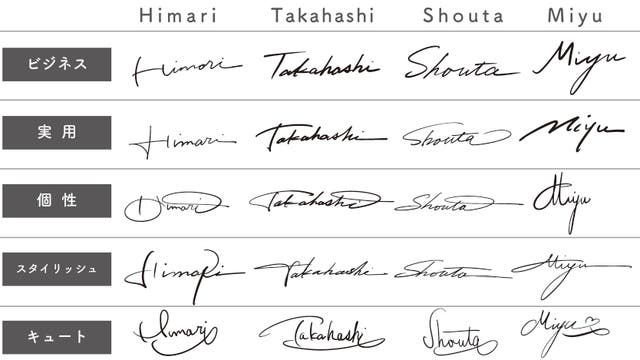 Himari Takahashi Shouta Miyu
ビジネス Himari Takahashi Shouta Miyu
実用 Himari Takahashi Shouta Miyu
個性 Himari Takahashi Shouta Miyu
スタイリッシュ Himari Takahashi Shouta Miyu
キュート Himari Takahashi Shouta Miyu